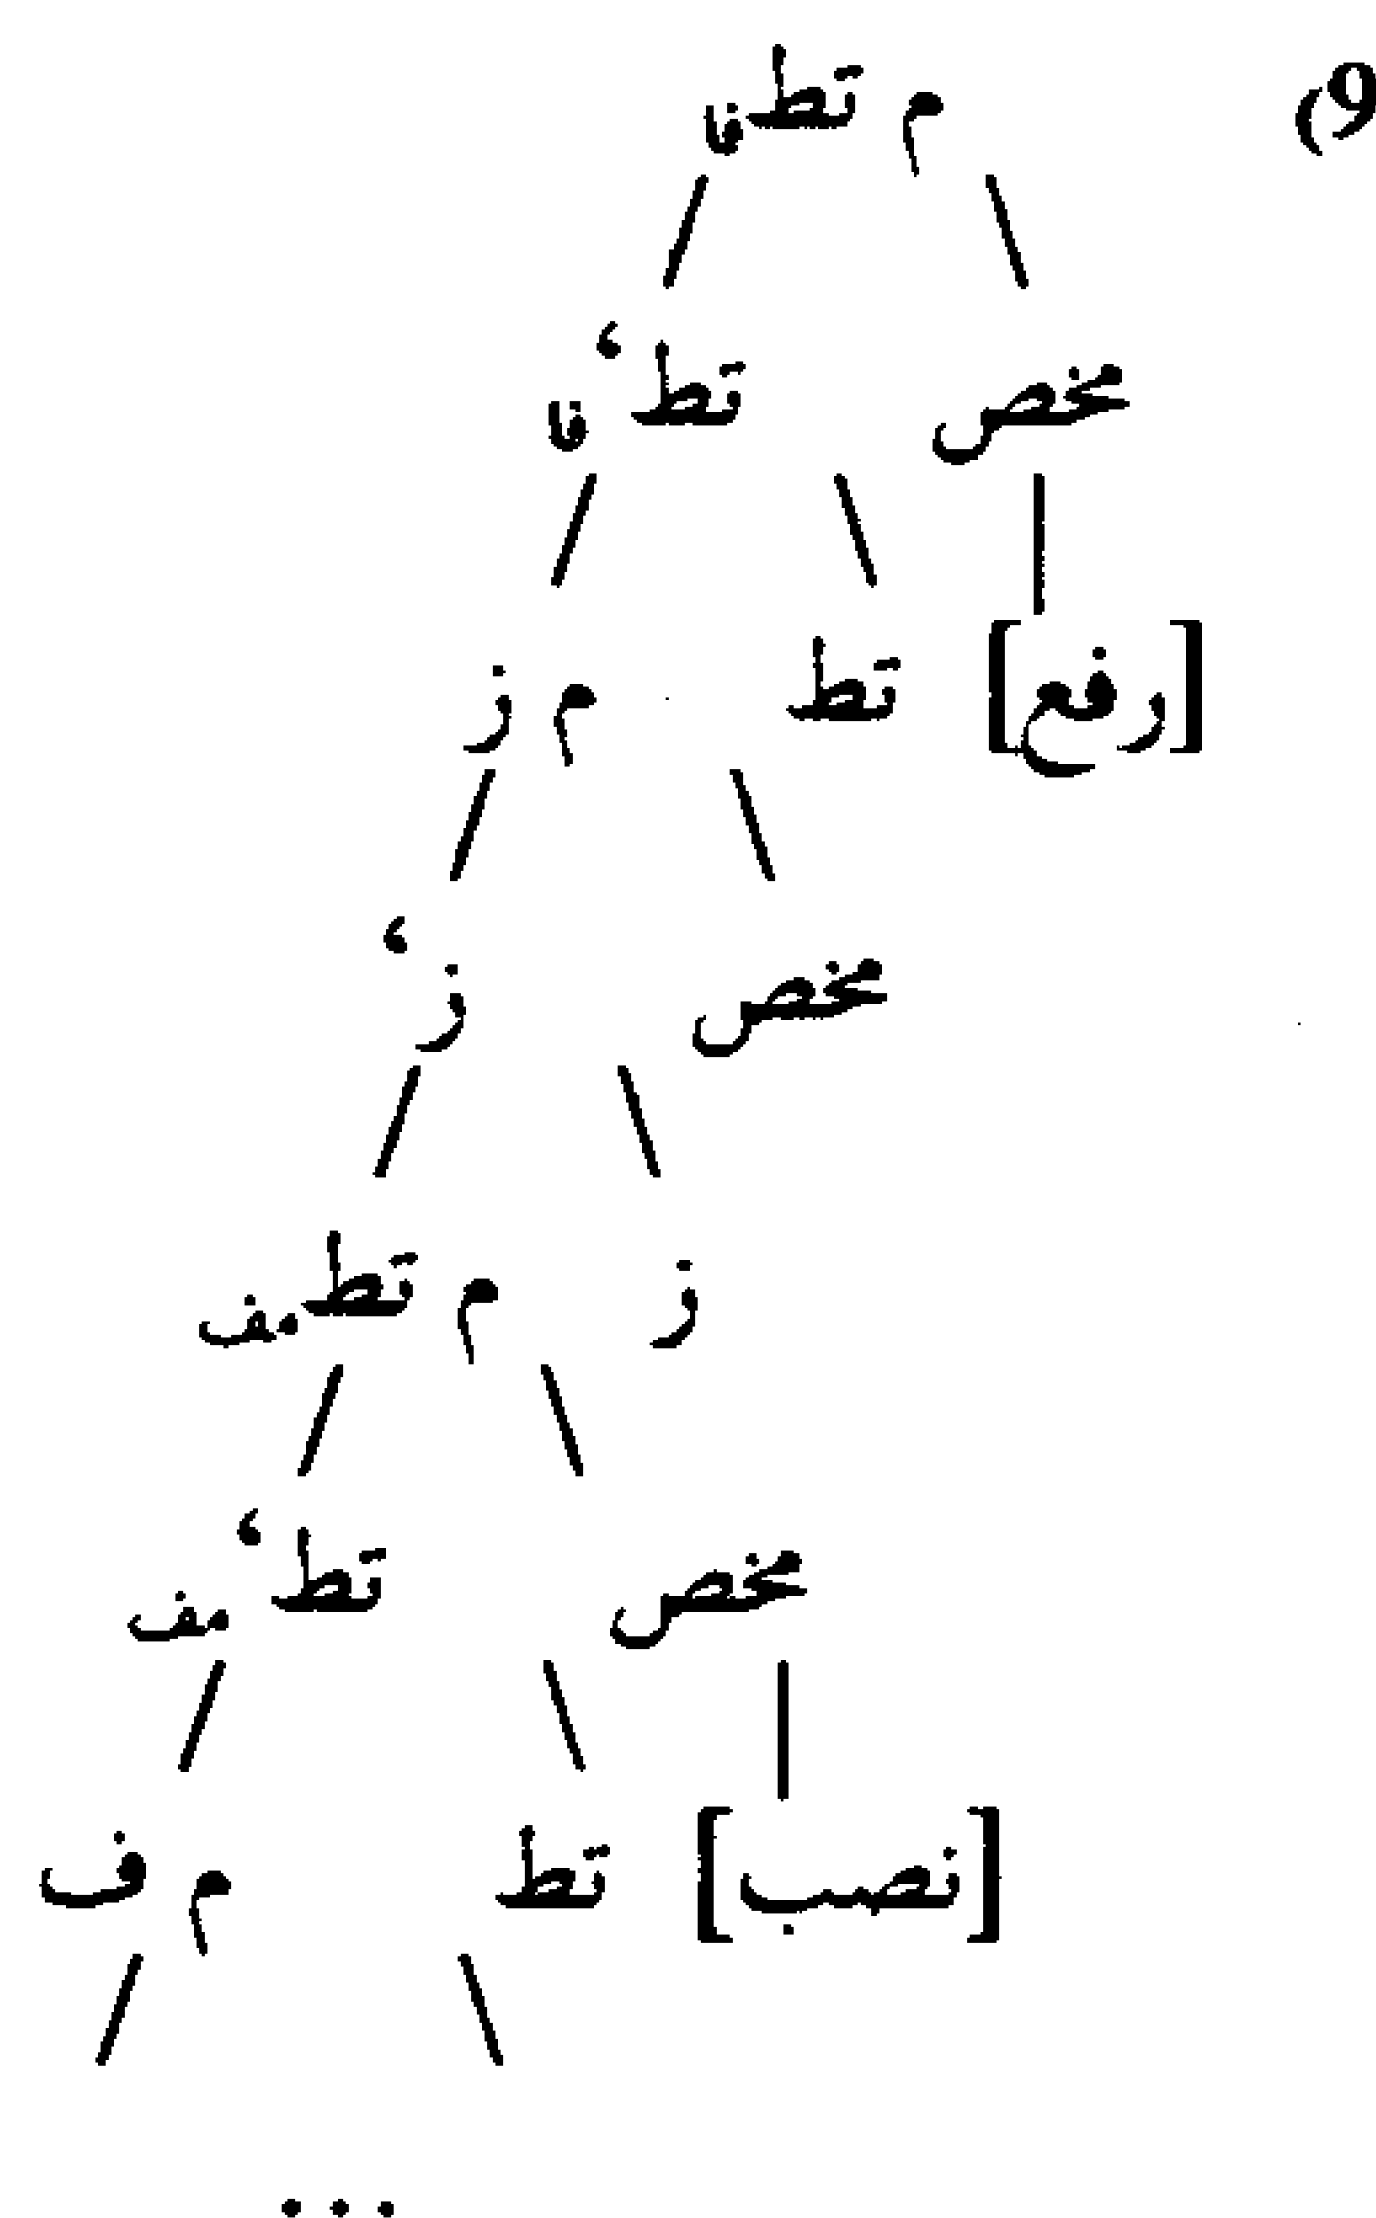 (9 م تطفا
مخص تط‘فا
[رفع] تط م ز
مخص ز‘
ز م تطمف
مخص تط‘مف
[نصب] تط م ف
...